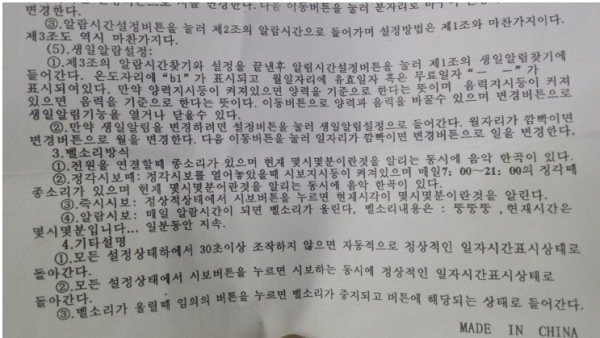 변경한다. 다음 이동버튼을 눌러 분자리로
③.알람시간설정버튼을 눌러 제2조의 알람시간으로 들어가며 설정방법은 제1조와 마찬가지이다.
제3조도 역시 마찬가지다.
(5).생일알람설정:
①.제3조의 알람시간찾기와 설정을 끝낸후 알림시간설정버튼을 눌러 제1조의 생일알림찾기에
들어간다. 온도자리에 "b1"가 표시되고 월일자리에 유효일자 혹은 무료일자 "— —"가
표시되여있다. 만약 양력지시등이 켜져있으면 양력을 기준으로 한다는 뜻이며 음력지시등이 켜져
있으면 음력을 기준으로 한다는 뜻이다. 이동버튼으로 양력과 음력을 바꿀수 있으며 변경버튼으로
생일알림기능을 열거나 닫을수 있다.
②.만약 생일알림을 변경하려면 설정버튼을 눌러 생일알림설정으로 들어간다. 월자리가 깜빡이면
변경버튼으로 월을 변경한다. 다음 이동버튼을 눌러 일자리가 깜빡이면 변경버튼으로 일을 변경한다.
3.벨소리방식
①.전원을 연결할때 종소리가 있으며 현재 몇시몇분이란것을 알리는 동시에 음악 한곡이 있다.
②.정각시보때: 정각시보를 열어놓았을때 시보지시등이 켜져있으며 매일7: 00—21: 00의 정각때
종소리가 있으며 현재 몇시몇분이란것을 알리는 동시에 음악 한곡이 있다.
③.즉시시보: 정상적상태에서 시보버튼을 누르면 현재시각이 몇시몇분이란것을 알린다.
④.알람시보: 매일 알람시간이 되면 벨소리가 울린다, 벨소리내용은 : 뚱뚱뚱 ,현재시간은
몇시몇분입니다... 일분동안 지속.
4.기타설명
①.모든 설정상태하에서 30초이상 조작하지 않으면 자동적으로 정상적인 일자시간표시상태로
돌아간다.
②.모든 설정상태에서 시보버튼을 누르면 시보하는 동시에 정상적인 일자시간표시상태로
돌아간다.
③.벨소리가 울릴때 임의의 버튼을 누르면 벨소리가 중지되고 버튼에 해당되는 상태로 들어간다.
MADE IN CHINA